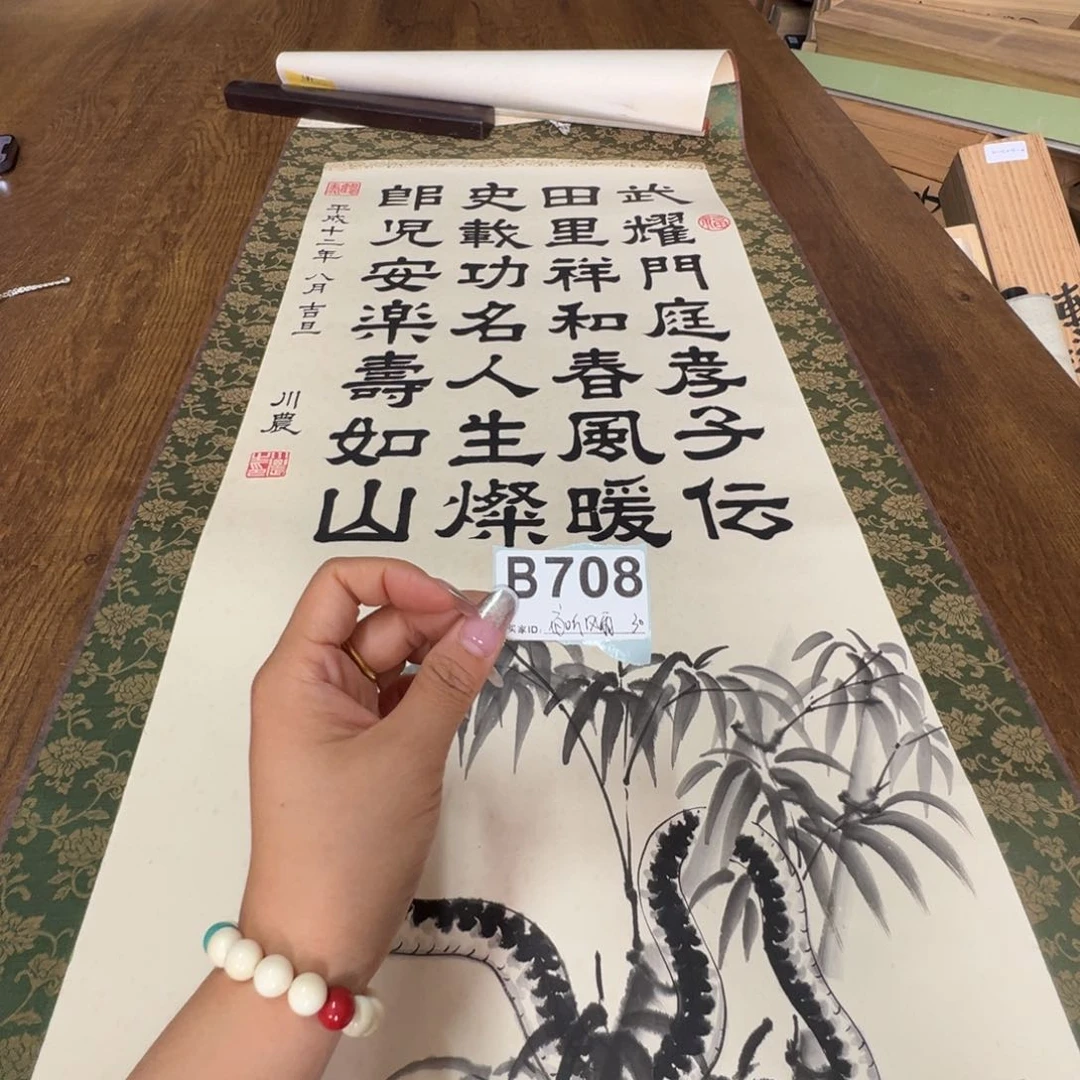 武耀門庭孝子伝
田里祥和春風暖
史載功名人生燦
郎児安楽壽如山
平成十二年八月吉旦
川農
福
B708
买家ID:
30